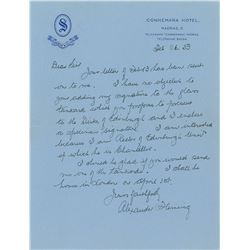 CONNEMARA HOTEL,
MADRAS, 2.
Dear Sir
Your letter of Feb 13 has been sent
on to me. I have no objection
to you adding my signature to the glass
tankard which you propose to present
to the Duke of Edinburgh and I enclose
a specimen signature. I am interested
because I am Rector of Edinburgh University
of which he is Chancellor.
I should be glad if you would send
me one of the tankards. I shall be
home in London on April 1st.
Yours faithfully
Alexander Fleming